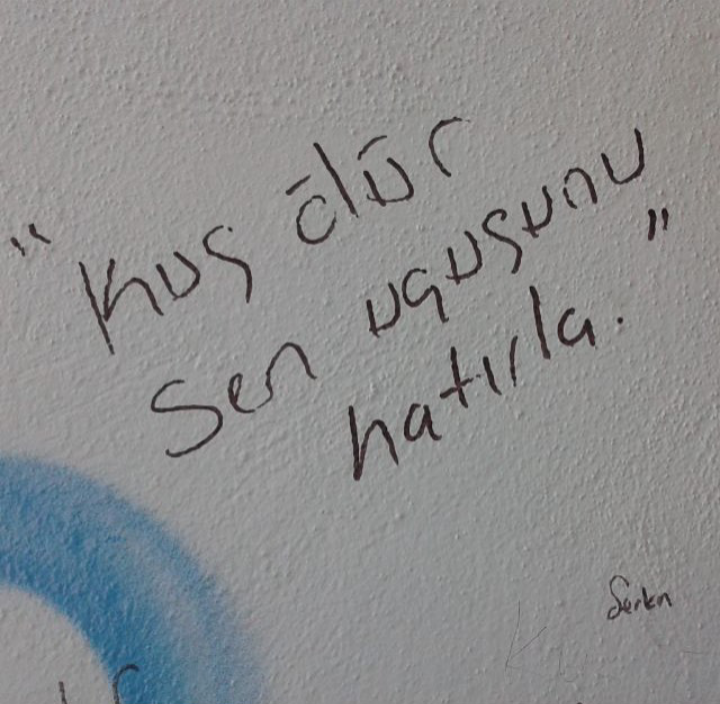 "Kuş ölür
Sen uçuşunu
hatırla."